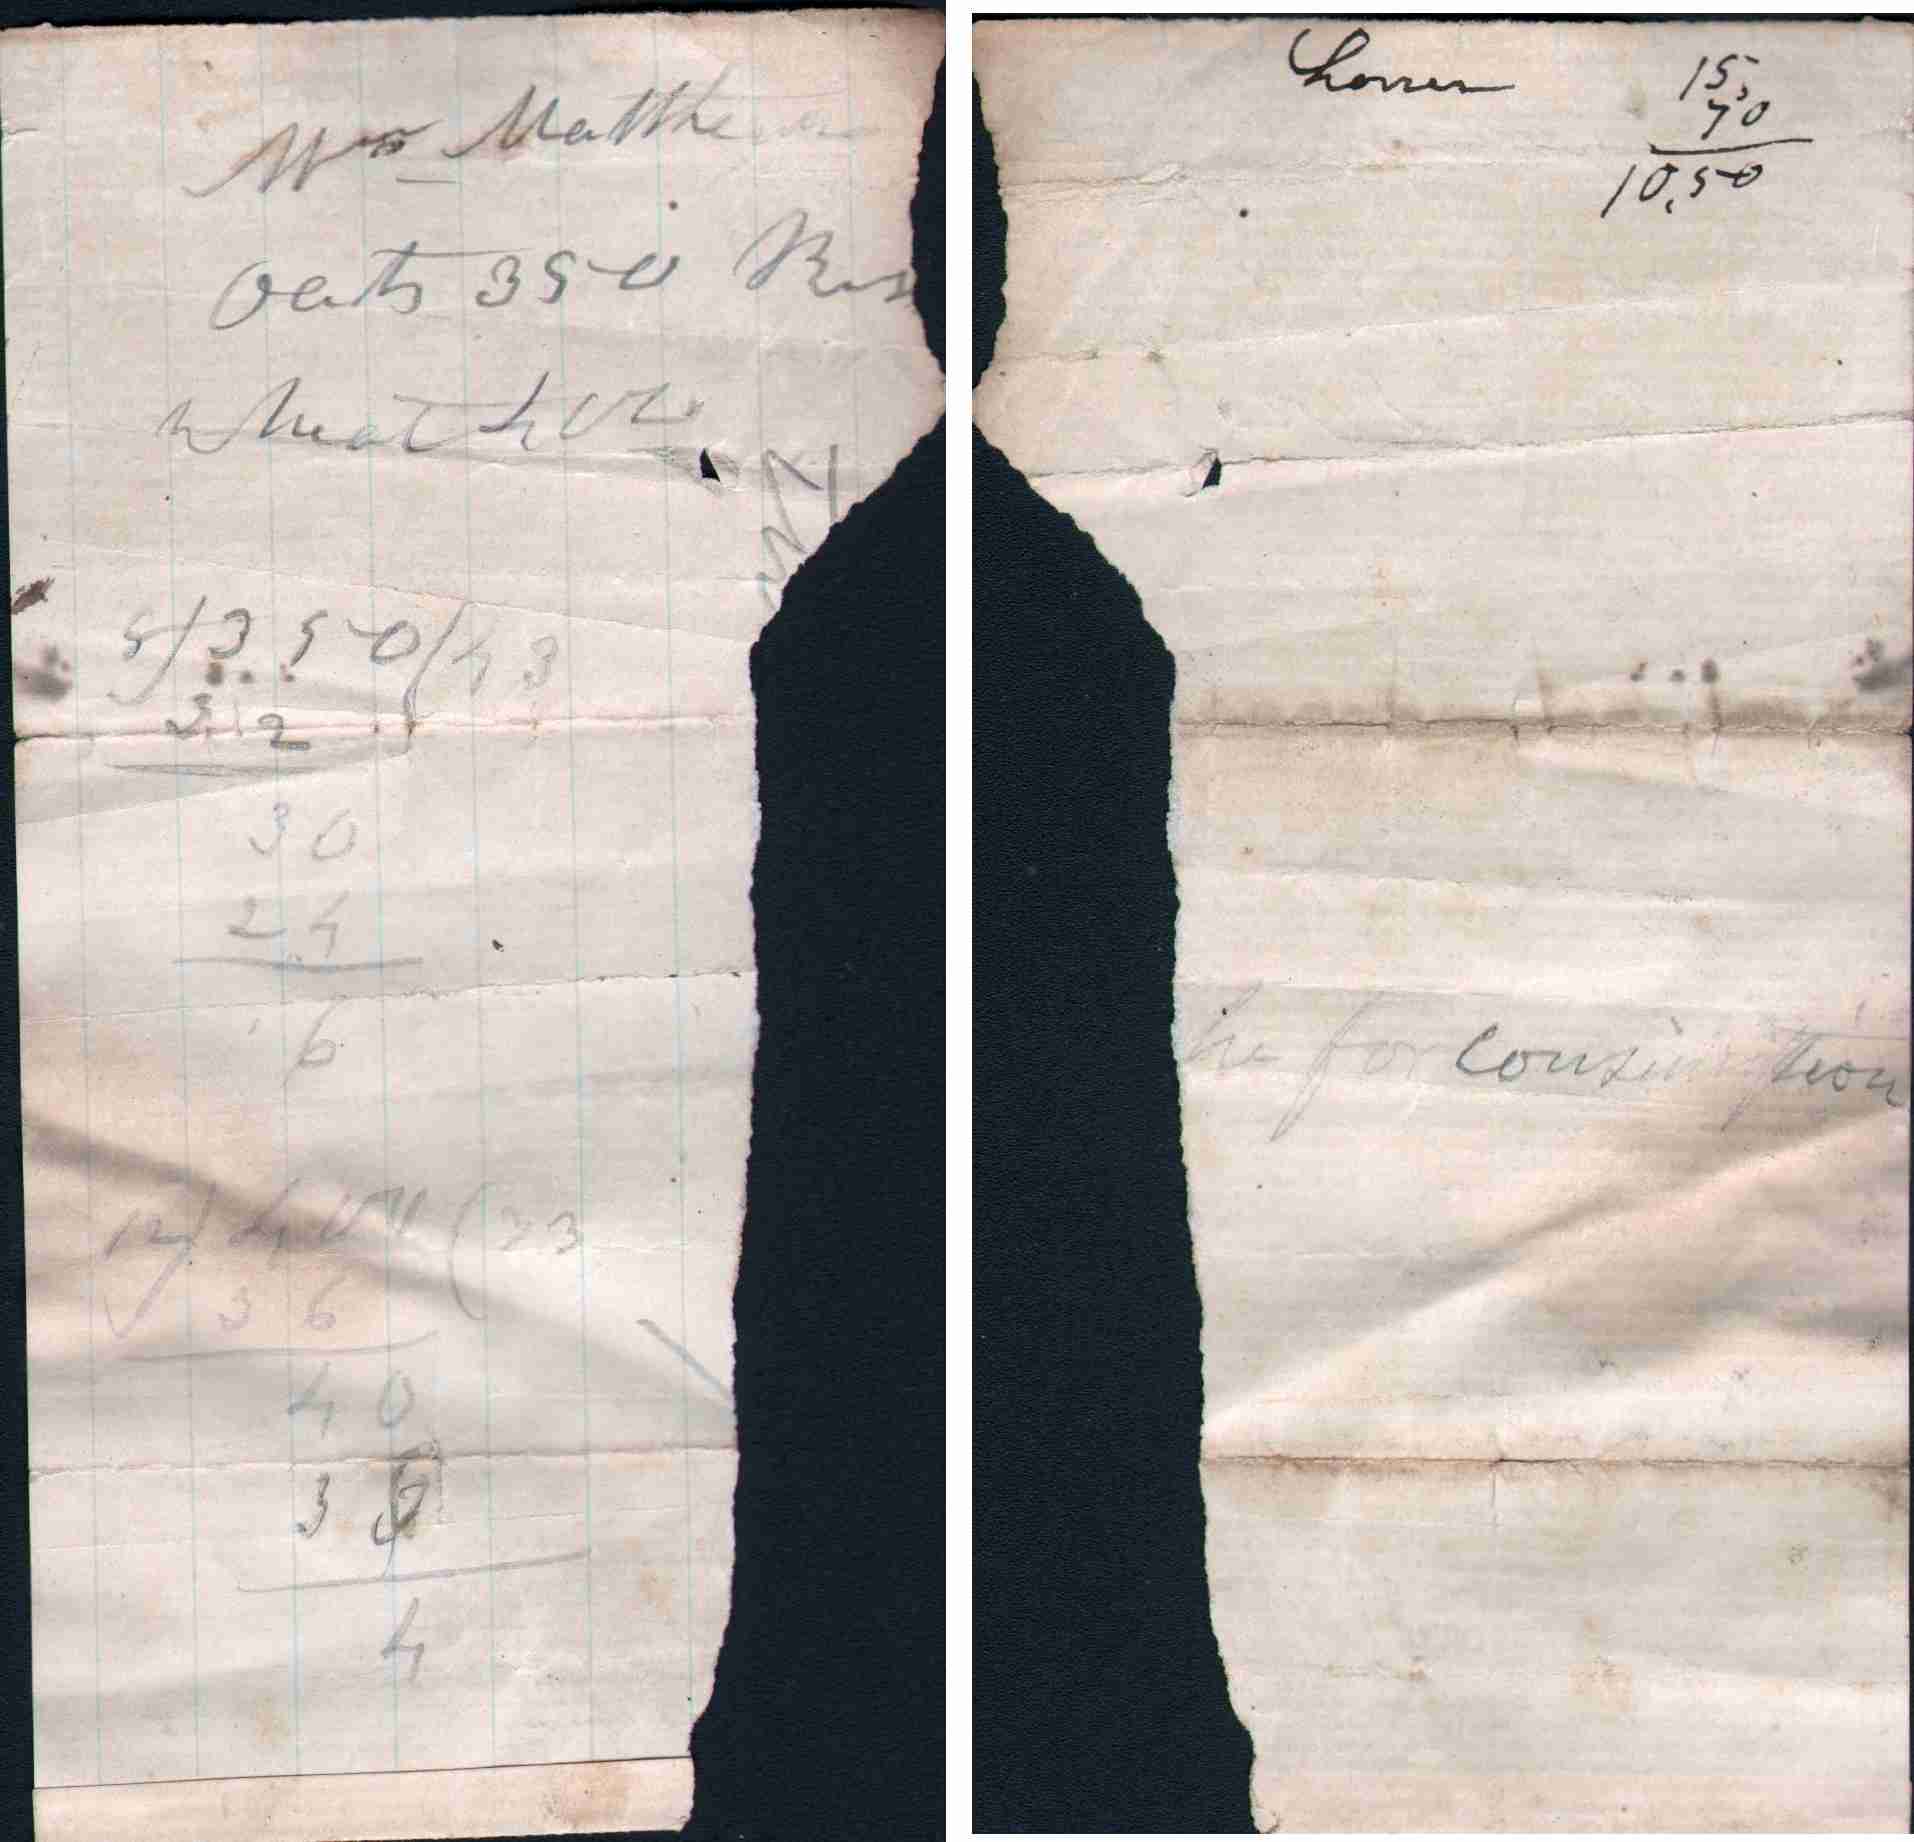 Wm Matthews
Oats 350 Bus
wheat 400
8)350(43
32
30
24
6
12)400(33
36
40
36
4
horses
15,
70
10,50
for consumption